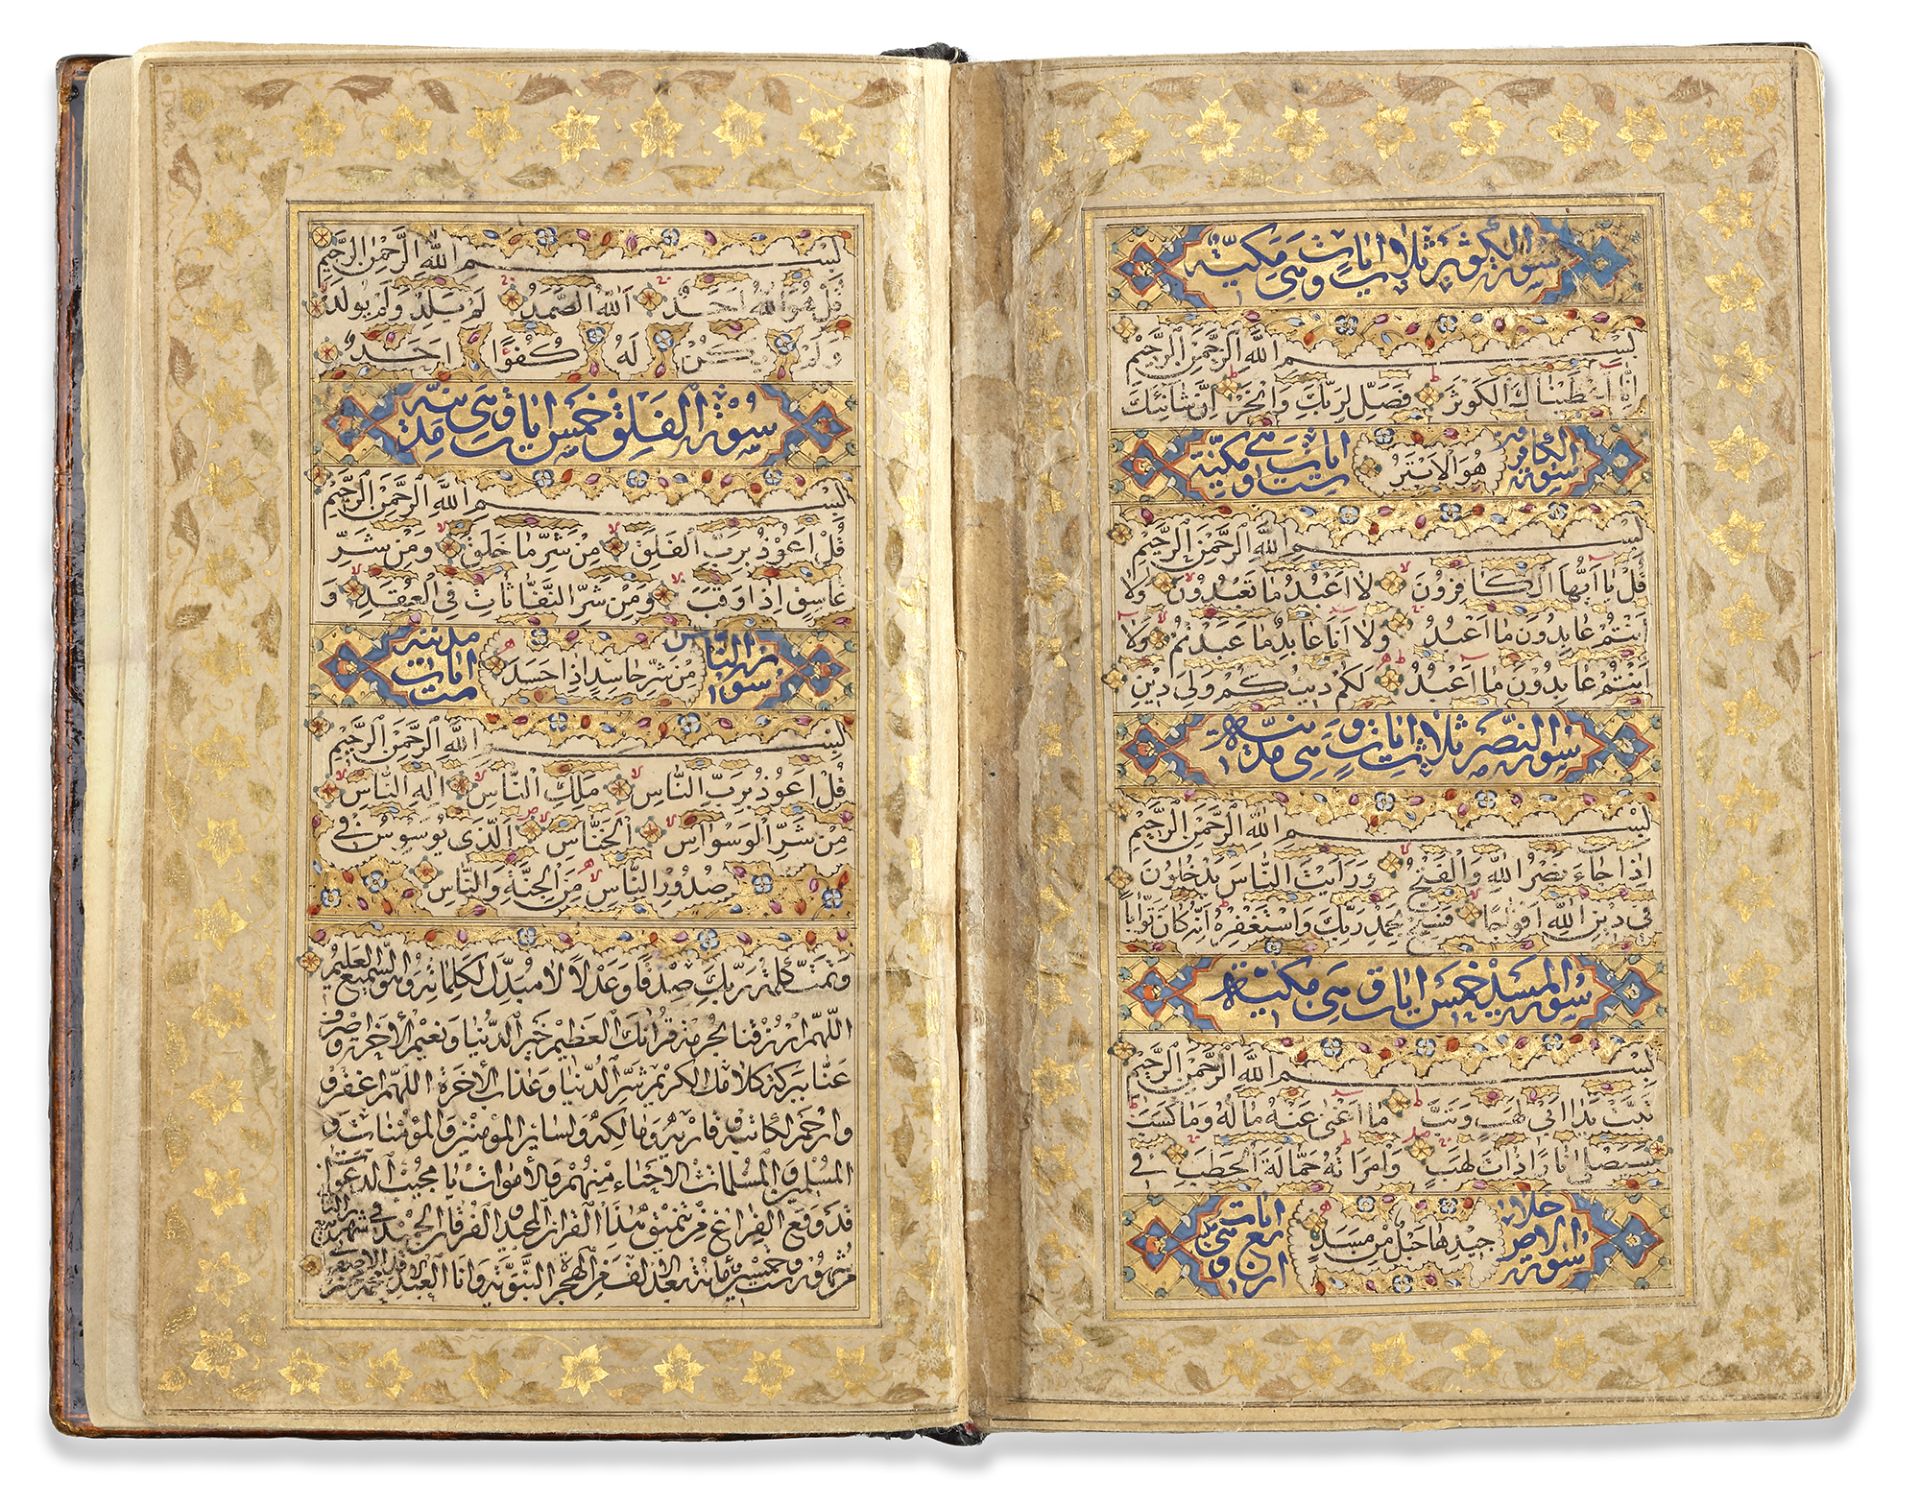 سورة الكوثر ثلاث ايات وهي مكية
بِسْمِ اللهِ الرَّحْمٰنِ الرَّحِيْمِ
اِنَّا اَعْطَيْنَاكَ الْكَوْثَرَ فَصَلِّ لِرَبِّكَ وَانْحَرْ اِنَّ شَانِئَكَ
سورة الكافرون هُوَ الْاَبْتَرُ ست ايات وهي مكية
بِسْمِ اللهِ الرَّحْمٰنِ الرَّحِيْمِ
قُلْ يَا اَيُّهَا الْكَافِرُونَ لَا اَعْبُدُ مَا تَعْبُدُونَ وَلَا
اَنْتُمْ عَابِدُونَ مَا اَعْبُدُ وَلَا اَنَا عَابِدٌ مَا عَبَدْتُمْ وَلَا
اَنْتُمْ عَابِدُونَ مَا اَعْبُدُ لَكُمْ دِينُكُمْ وَلِيَ دِيْنِ
سورة النصر ثلاث ايات وهي مدنية
بِسْمِ اللهِ الرَّحْمٰنِ الرَّحِيْمِ
اِذَا جَاءَ نَصْرُ اللهِ وَالْفَتْحُ وَرَاَيْتَ النَّاسَ يَدْخُلُونَ
فِي دِيْنِ اللهِ اَفْوَاجًا فَسَبِّحْ بِحَمْدِ رَبِّكَ وَاسْتَغْفِرْهُ اِنَّهُ كَانَ تَوَّابًا
سورة المسد خمس ايات وهي مكية
بِسْمِ اللهِ الرَّحْمٰنِ الرَّحِيْمِ
تَبَّتْ يَدَا اَبِي لَهَبٍ وَتَبَّ مَا اَغْنٰى عَنْهُ مَالُهُ وَمَا كَسَبَ
سَيَصْلٰى نَارًا ذَاتَ لَهَبٍ وَامْرَاَتُهُ حَمَّالَةَ الْحَطَبِ فِي
سورة الاخلاص جِيْدِهَا حَبْلٌ مِنْ مَسَدٍ اربع ايات وهي
بِسْمِ اللهِ الرَّحْمٰنِ الرَّحِيْمِ
قُلْ هُوَ اللهُ اَحَدٌ اَللهُ الصَّمَدُ لَمْ يَلِدْ وَلَمْ يُولَدْ
وَلَمْ يَكُنْ لَهُ كُفُؤًا اَحَدٌ
سورة الفلق خمس ايات وهي مدنية
بِسْمِ اللهِ الرَّحْمٰنِ الرَّحِيْمِ
قُلْ اَعُوْذُ بِرَبِّ الْفَلَقِ مِنْ شَرِّ مَا خَلَقَ وَمِنْ شَرِّ
غَاسِقٍ اِذَا وَقَبَ وَمِنْ شَرِّ النَّفَّاثَاتِ فِي الْعُقَدِ وَ
سورة الناس مِنْ شَرِّ حَاسِدٍ اِذَا حَسَدَ ست ايات مدنية
بِسْمِ اللهِ الرَّحْمٰنِ الرَّحِيْمِ
قُلْ اَعُوْذُ بِرَبِّ النَّاسِ مَلِكِ النَّاسِ اِلٰهِ النَّاسِ
مِنْ شَرِّ الْوَسْوَاسِ الْخَنَّاسِ اَلَّذِي يُوَسْوِسُ فِي
صُدُوْرِ النَّاسِ مِنَ الْجِنَّةِ وَالنَّاسِ
وَتَمَّتْ كَلِمَةُ رَبِّكَ صِدْقًا وَعَدْلًا لَا مُبَدِّلَ لِكَلِمَاتِهِ وَهُوَ السَّمِيْعُ الْعَلِيْمُ
اللّٰهُمَّ ارْزُقْنَا بِحُرْمَةِ قُرْاٰنِكَ الْعَظِيْمِ خَيْرَ الدُّنْيَا وَنَعِيْمَ الْاٰخِرَةِ وَاصْرِفْ
عَنَّا بِبَرَكَةِ كَلَامِكَ الْكَرِيْمِ شَرَّ الدُّنْيَا وَعَذَابَ الْاٰخِرَةِ اللّٰهُمَّ اغْفِرْ وَ
وَارْحَمْ لِكَاتِبِهِ وَقَارِيْهِ وَمَالِكِهِ وَلِسَائِرِ الْمُؤْمِنِيْنَ وَالْمُؤْمِنَاتِ وَ
الْمُسْلِمِيْنَ وَالْمُسْلِمَاتِ الْاَحْيَاءِ مِنْهُمْ وَالْاَمْوَاتِ يَا مُجِيْبَ الدَّعَوَاتِ
قَدْ وَقَعَ الْفَرَاغُ مِنْ تَنْمِيْقِ هٰذَا الْقُرْاٰنِ الْمَجِيْدِ وَالْفُرْقَانِ الْحَمِيْدِ فِي شَهْرِ
مِنْ شُهُوْرِ وَخَمْسِيْنَ وَمِائَة بَعْدَ الْاَلْفِ مِنَ الْهِجْرَةِ النَّبَوِيَّةِ وَاَنَا الْعَبْدُ